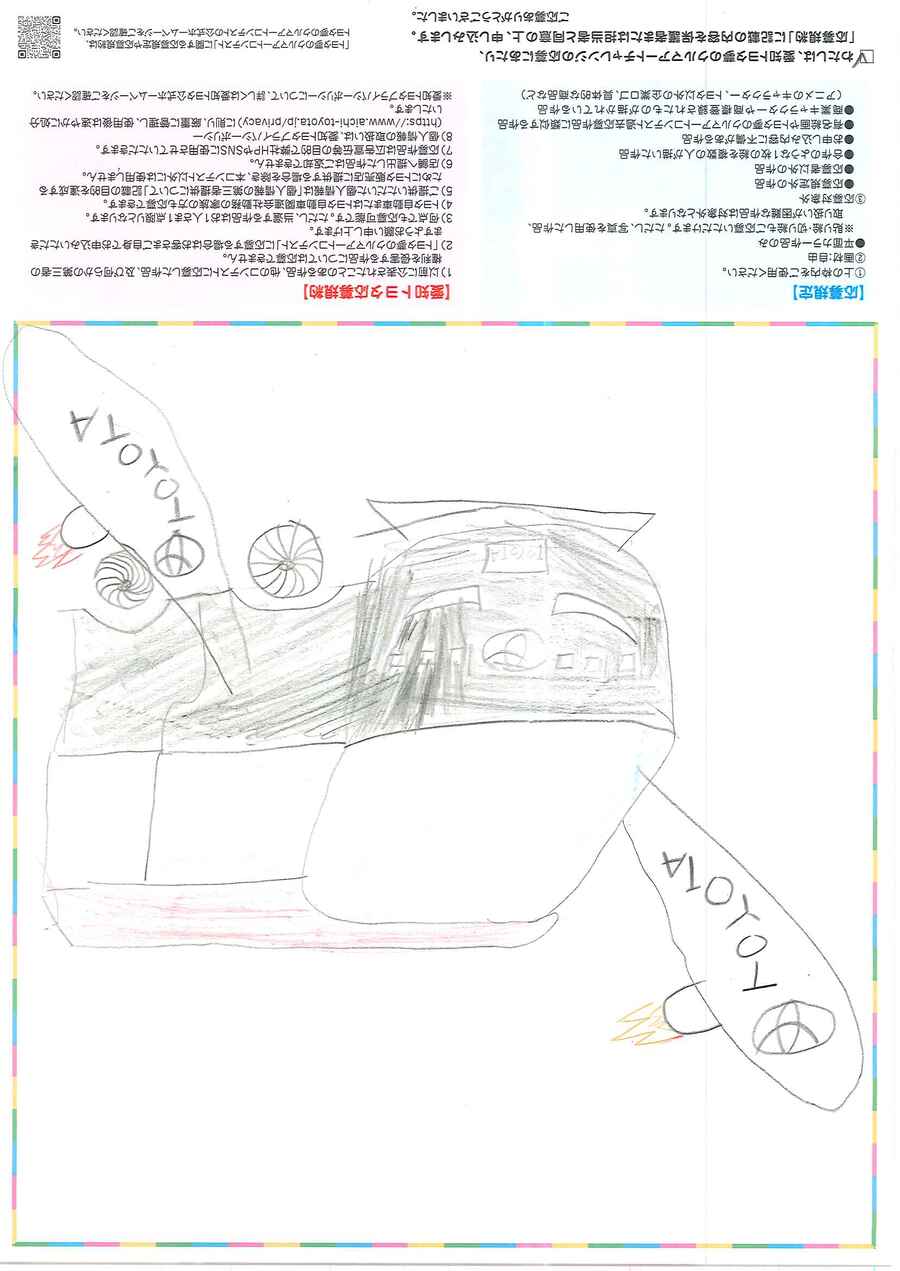 TOYOTA
TOYOTA
【応募規定】
①上の枠内をご使用ください。
②画材：自由
●平面カラー作品のみ
※貼り絵・切り絵もご応募いただけます。ただし、写真を使用した作品、
取扱いが困難な作品は対象外となります。
③応募対象外
●応募規定外の作品
●応募者以外の作品
●合作のような1枚の絵を複数の人が描いた作品
●お申し込み内容に不備がある作品
●有名絵画やトヨタ夢のクルマアートコンテスト過去応募作品に類似する作品
●商業キャラクターや商標登録されたものが描かれている作品
（アニメのキャラクター、トヨタ以外の企業ロゴ、具体的な商品など）
【愛知トヨタ応募規約】
1）以前に公表されたことのある作品、他のコンテストに応募した作品、及び何らかの第三者の
権利を侵害する作品については応募できません。
2）「トヨタ夢のクルマアートコンテスト」に応募する場合はお客さまご自身でお申込みいただき
ますようお願い申し上げます。
3）何点でも応募可能です。ただし、当選する作品はお1人さま1点限りとなります。
4）トヨタ自動車またはトヨタ自動車関連会社勤務の家族の方も応募できます。
5）ご提供いただいた個人情報は「個人情報の第三者提供について」記載の目的を達成する
ためにトヨタ販売店に提供する場合を除き、本コンテスト以外には使用しません。
6）店舗へ提出した作品はご返却できません。
7）応募作品は広告宣伝等の目的で弊社HPやSNSに使用させていただきます。
8）個人情報の取扱いは、愛知トヨタプライバシーポリシー
（https://www.aichi-toyota.jp/privacy）に則り、厳重に管理し、使用後は速やかに処分
いたします。
※愛知トヨタプライバシーポリシーについて、詳しくは愛知トヨタ公式ホームページをご確認ください。
わたしは、愛知トヨタ夢のクルマアートチャレンジの応募にあたり、
「応募規約」に記載の内容を保護者または担当者と同意の上、申し込みします。
ご応募ありがとうございました。
「トヨタ夢のクルマアートコンテスト」に関する応募規定や応募規約は、
トヨタ夢のクルマアートコンテストの公式ホームページをご確認ください。